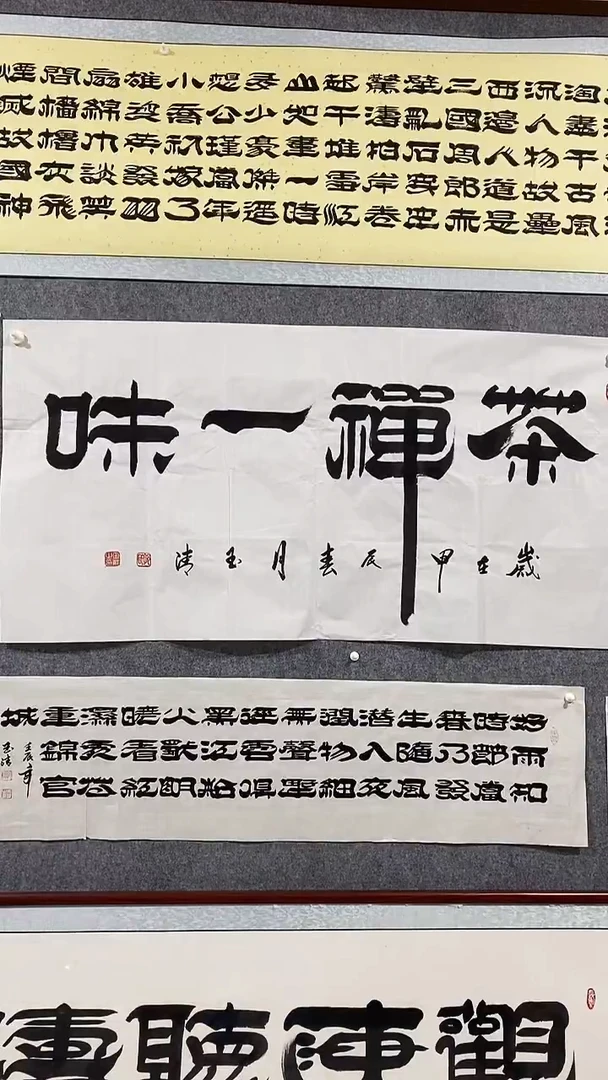 淘盡千古風
流人物故壘
西邊人道是
三國周郎赤
壁亂石穿空
驚濤拍岸卷
起千堆雪江
山如畫一時
多少豪傑遙
想公瑾當年
小喬初嫁了
雄姿英發羽
扇綸巾談笑
間檣櫓灰飛
煙滅故國神
茶禪一味
歲在甲辰春月玉清
好雨知
時節當
春乃發
生隨風
潛入夜
潤物細
無聲野
徑雲俱
黑江船
火獨明
曉看紅
濕處花
重錦官
城
壬辰年
玉清
觀海聽濤